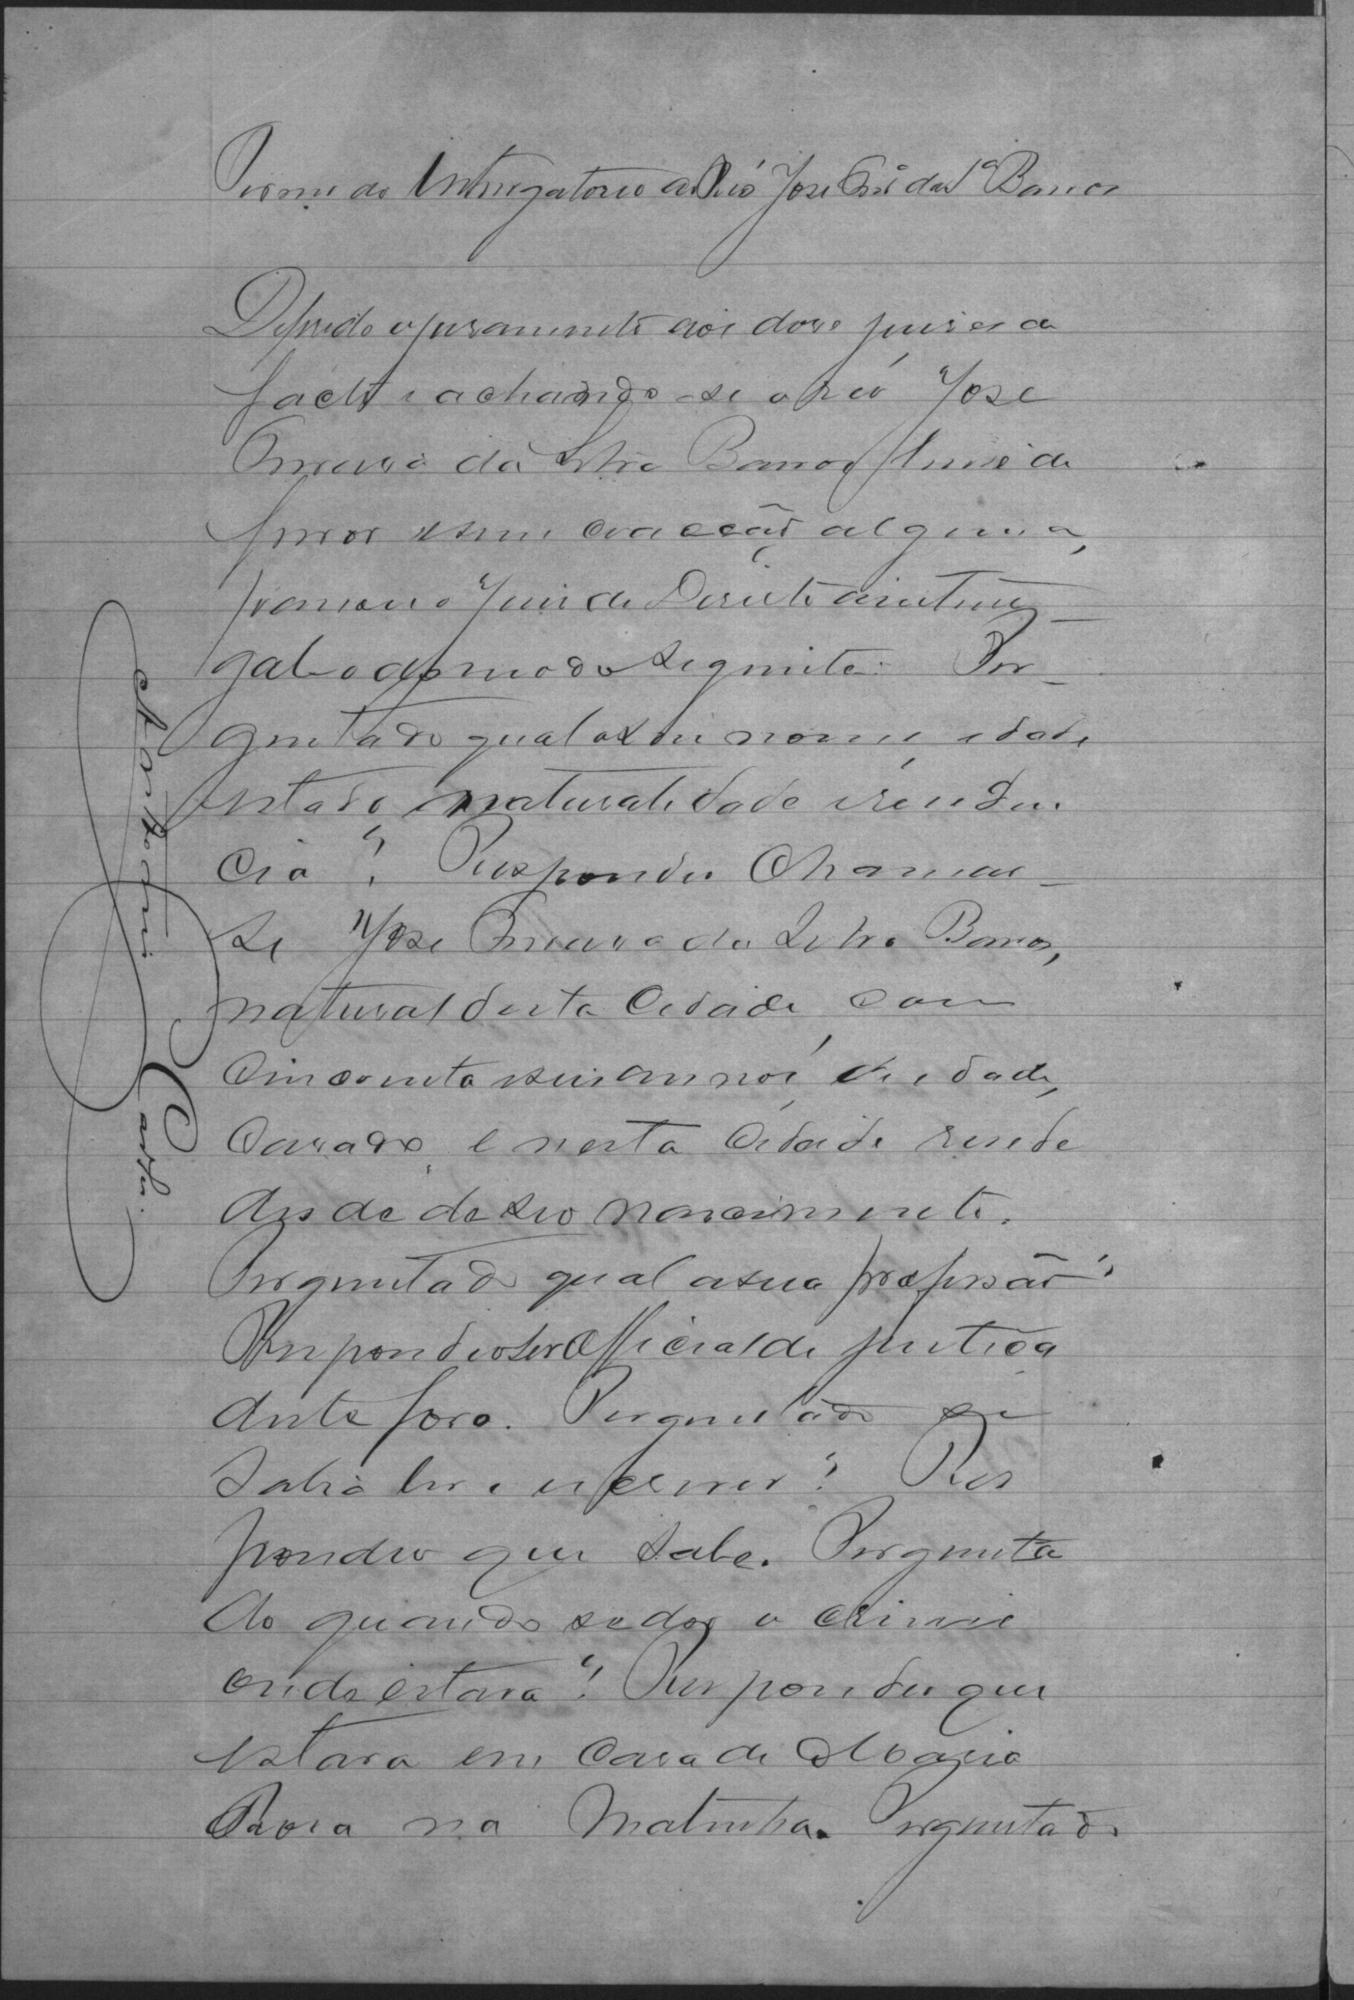 Termo de Interrogatorio ao Réo José Cor.ª da S.ª Barros
Deferido o juramento aos doze juizes de
facto e achando-se o réo José
Correia da Silva Barros livre de
ferros e sem coacção alguma,
passou o Juiz de Direito a interro-
gal-o do modo seguinte: Per-
guntado qual o seu nome, idade
estado, naturalidade e residen
cia? Respondeu chamar-
se José Correia da Silva Barros,
natural desta Cidade, com
cincoenta e seis annos de idade,
casado, e nesta Cidade reside
desde de seo nascimento.
Perguntado qual a sua profissão?
Respondeo ser Official de justiça
deste foro. Perguntado se
sabia ler e escrever? Res
pondeo que sabe. Pergunta
do quando se deo o crime
onde estava? Respondeu que
estava em casa de Maria
Rosa na Matinha. Perguntado